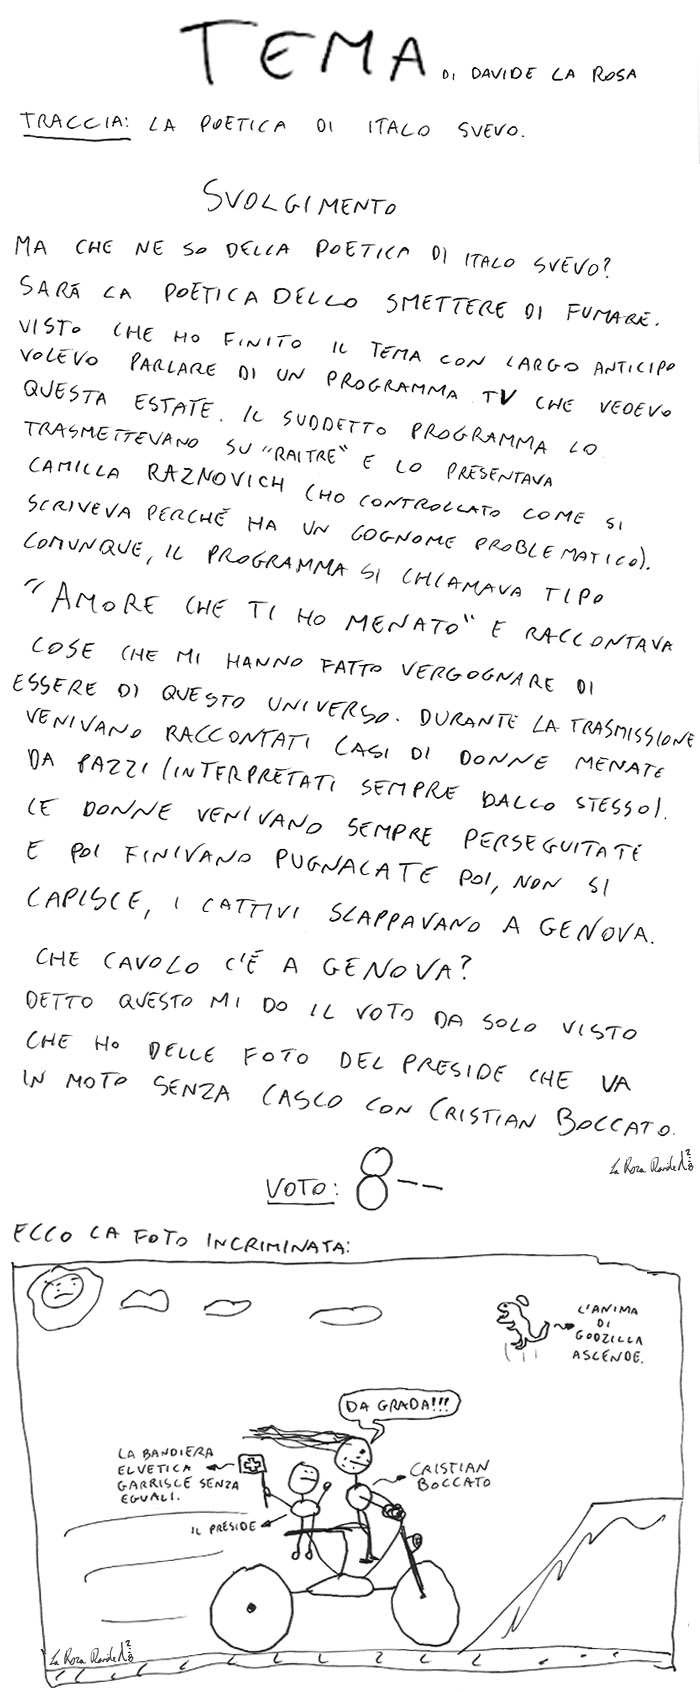 TEMA DI DAVIDE LA ROSA
TRACCIA: LA POETICA DI ITALO SVEVO.
SVOLGIMENTO
MA CHE NE SO DELLA POETICA DI ITALO SVEVO?
SARÀ LA POETICA DELLO SMETTERE DI FUMARE.
VISTO CHE HO FINITO IL TEMA CON LARGO ANTICIPO
VOLEVO PARLARE DI UN PROGRAMMA TV CHE VEDEVO
QUESTA ESTATE. IL SUDDETTO PROGRAMMA LO
TRASMETTEVANO SU "RAITRE" E LO PRESENTAVA
CAMILLA RAZNOVICH (HO CONTROLLATO COME SI
SCRIVEVA PERCHÉ HA UN COGNOME PROBLEMATICO).
COMUNQUE, IL PROGRAMMA SI CHIAMAVA TIPO
"AMORE CHE TI HO MENATO" E RACCONTAVA
COSE CHE MI HANNO FATTO VERGOGNARE DI
ESSERE DI QUESTO UNIVERSO. DURANTE LA TRASMISSIONE
VENIVANO RACCONTATI CASI DI DONNE MENATE
DA PAZZI (INTERPRETATI SEMPRE DALLO STESSO).
LE DONNE VENIVANO SEMPRE PERSEGUITATE
E POI FINIVANO PUGNALATE POI, NON SI
CAPISCE, I CATTIVI SCAPPAVANO A GENOVA.
CHE CAVOLO C'È A GENOVA?
DETTO QUESTO MI DO IL VOTO DA SOLO VISTO
CHE HO DELLE FOTO DEL PRESIDE CHE VA
IN MOTO SENZA CASCO CON CRISTIAN BOCCATO.
La Rosa Davide
VOTO: 8--
ECCO LA FOTO INCRIMINATA:
L'ANIMA
DI
GODZILLA
ASCENDE.
DA GRADA!!!
LA BANDIERA
ELVETICA
GARRISCE SENZA
EGUALI.
CRISTIAN
BOCCATO
IL PRESIDE
La Rosa Davide